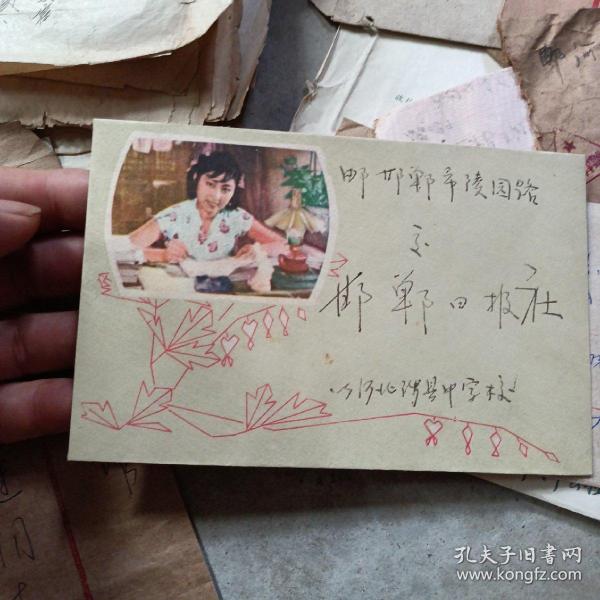 邮邯郸市陵园路
交
邯郸日报社
河北涉县中学校
邮
孔夫子旧书网
www.kongfz.com